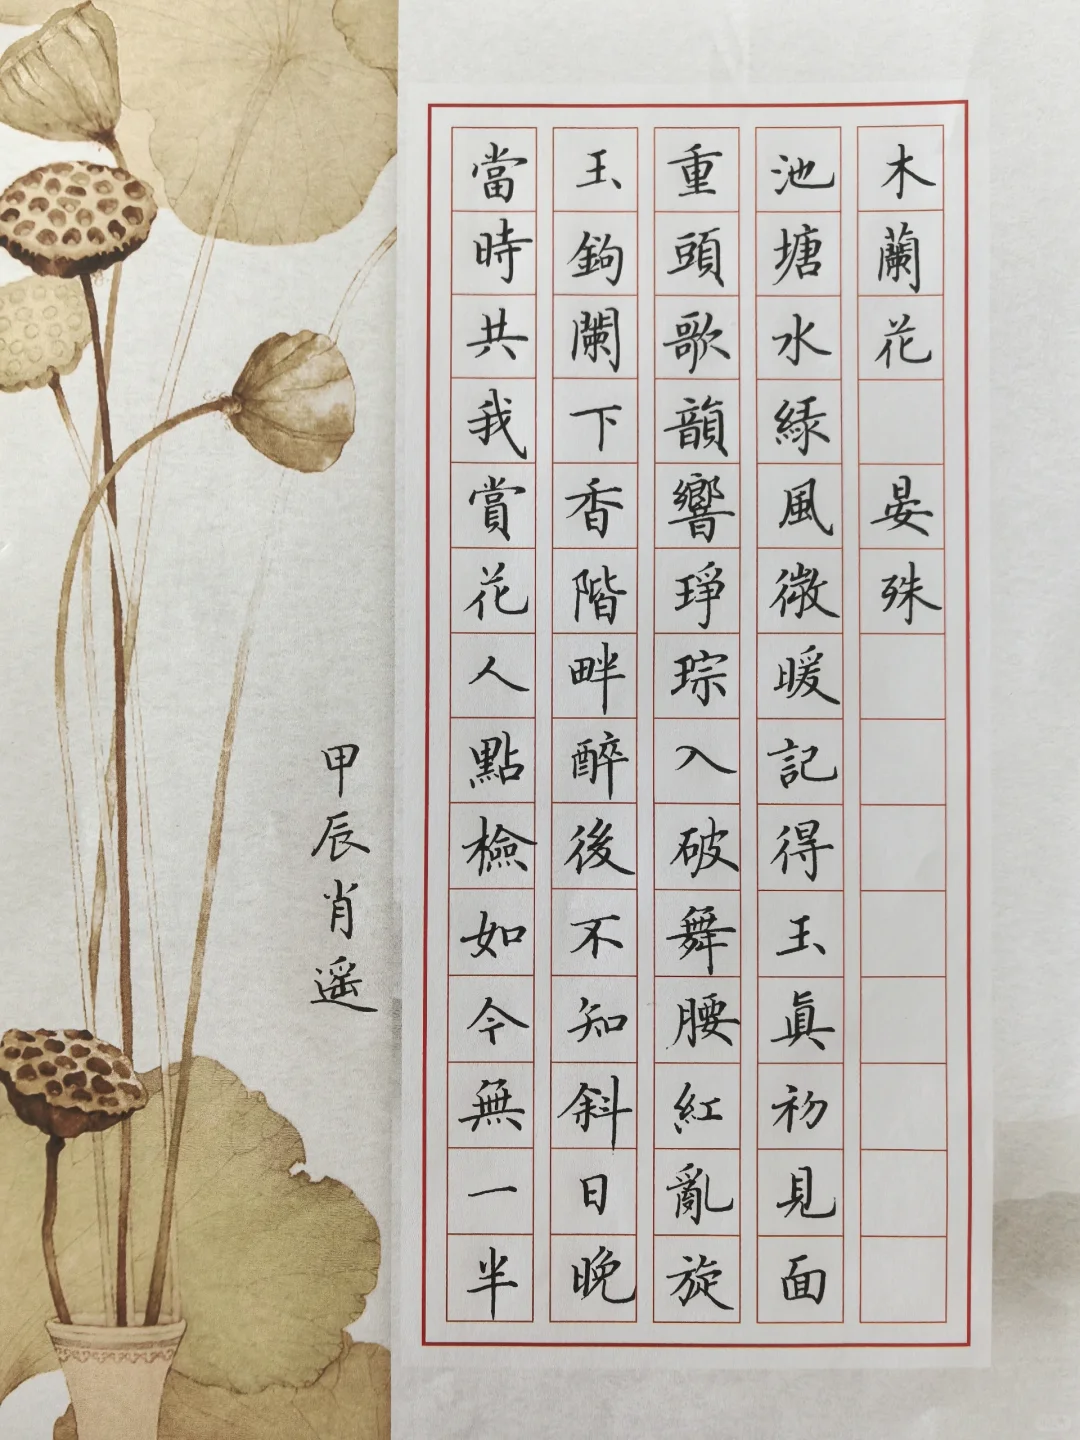 木蘭花 晏殊
池塘水緑風微暖記得玉真初見面
重頭歌韻響琤琮入破舞腰紅亂旋
玉鉤闌下香階畔醉後不知斜日晚
當時共我賞花人點檢如今無一半
甲辰肖遥